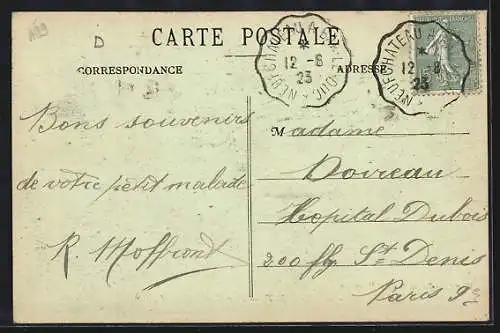 A29
D
CARTE POSTALE
CORRESPONDANCE
ADRESSE
NEUFCHATEAU A BAR-LE-DUC
12 - 8
23
NEUFCHATEAU A
12 - 8
23
Bons souvenirs
de votre petit malade
R.
Madame
Doireau
Hopital Dubois
200 fbg St Denis
Paris